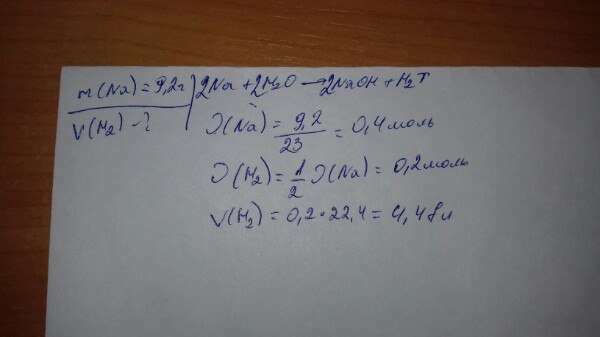 m(Na)=9,2г | 2Na+2H₂O→2NaOH+H₂↑
V(H₂)-?
ν(Na)=9,2/23=0,4моль
ν(H₂)=1/2 ν(Na)=0,2моль
V(H₂)=0,2·22,4=4,48л